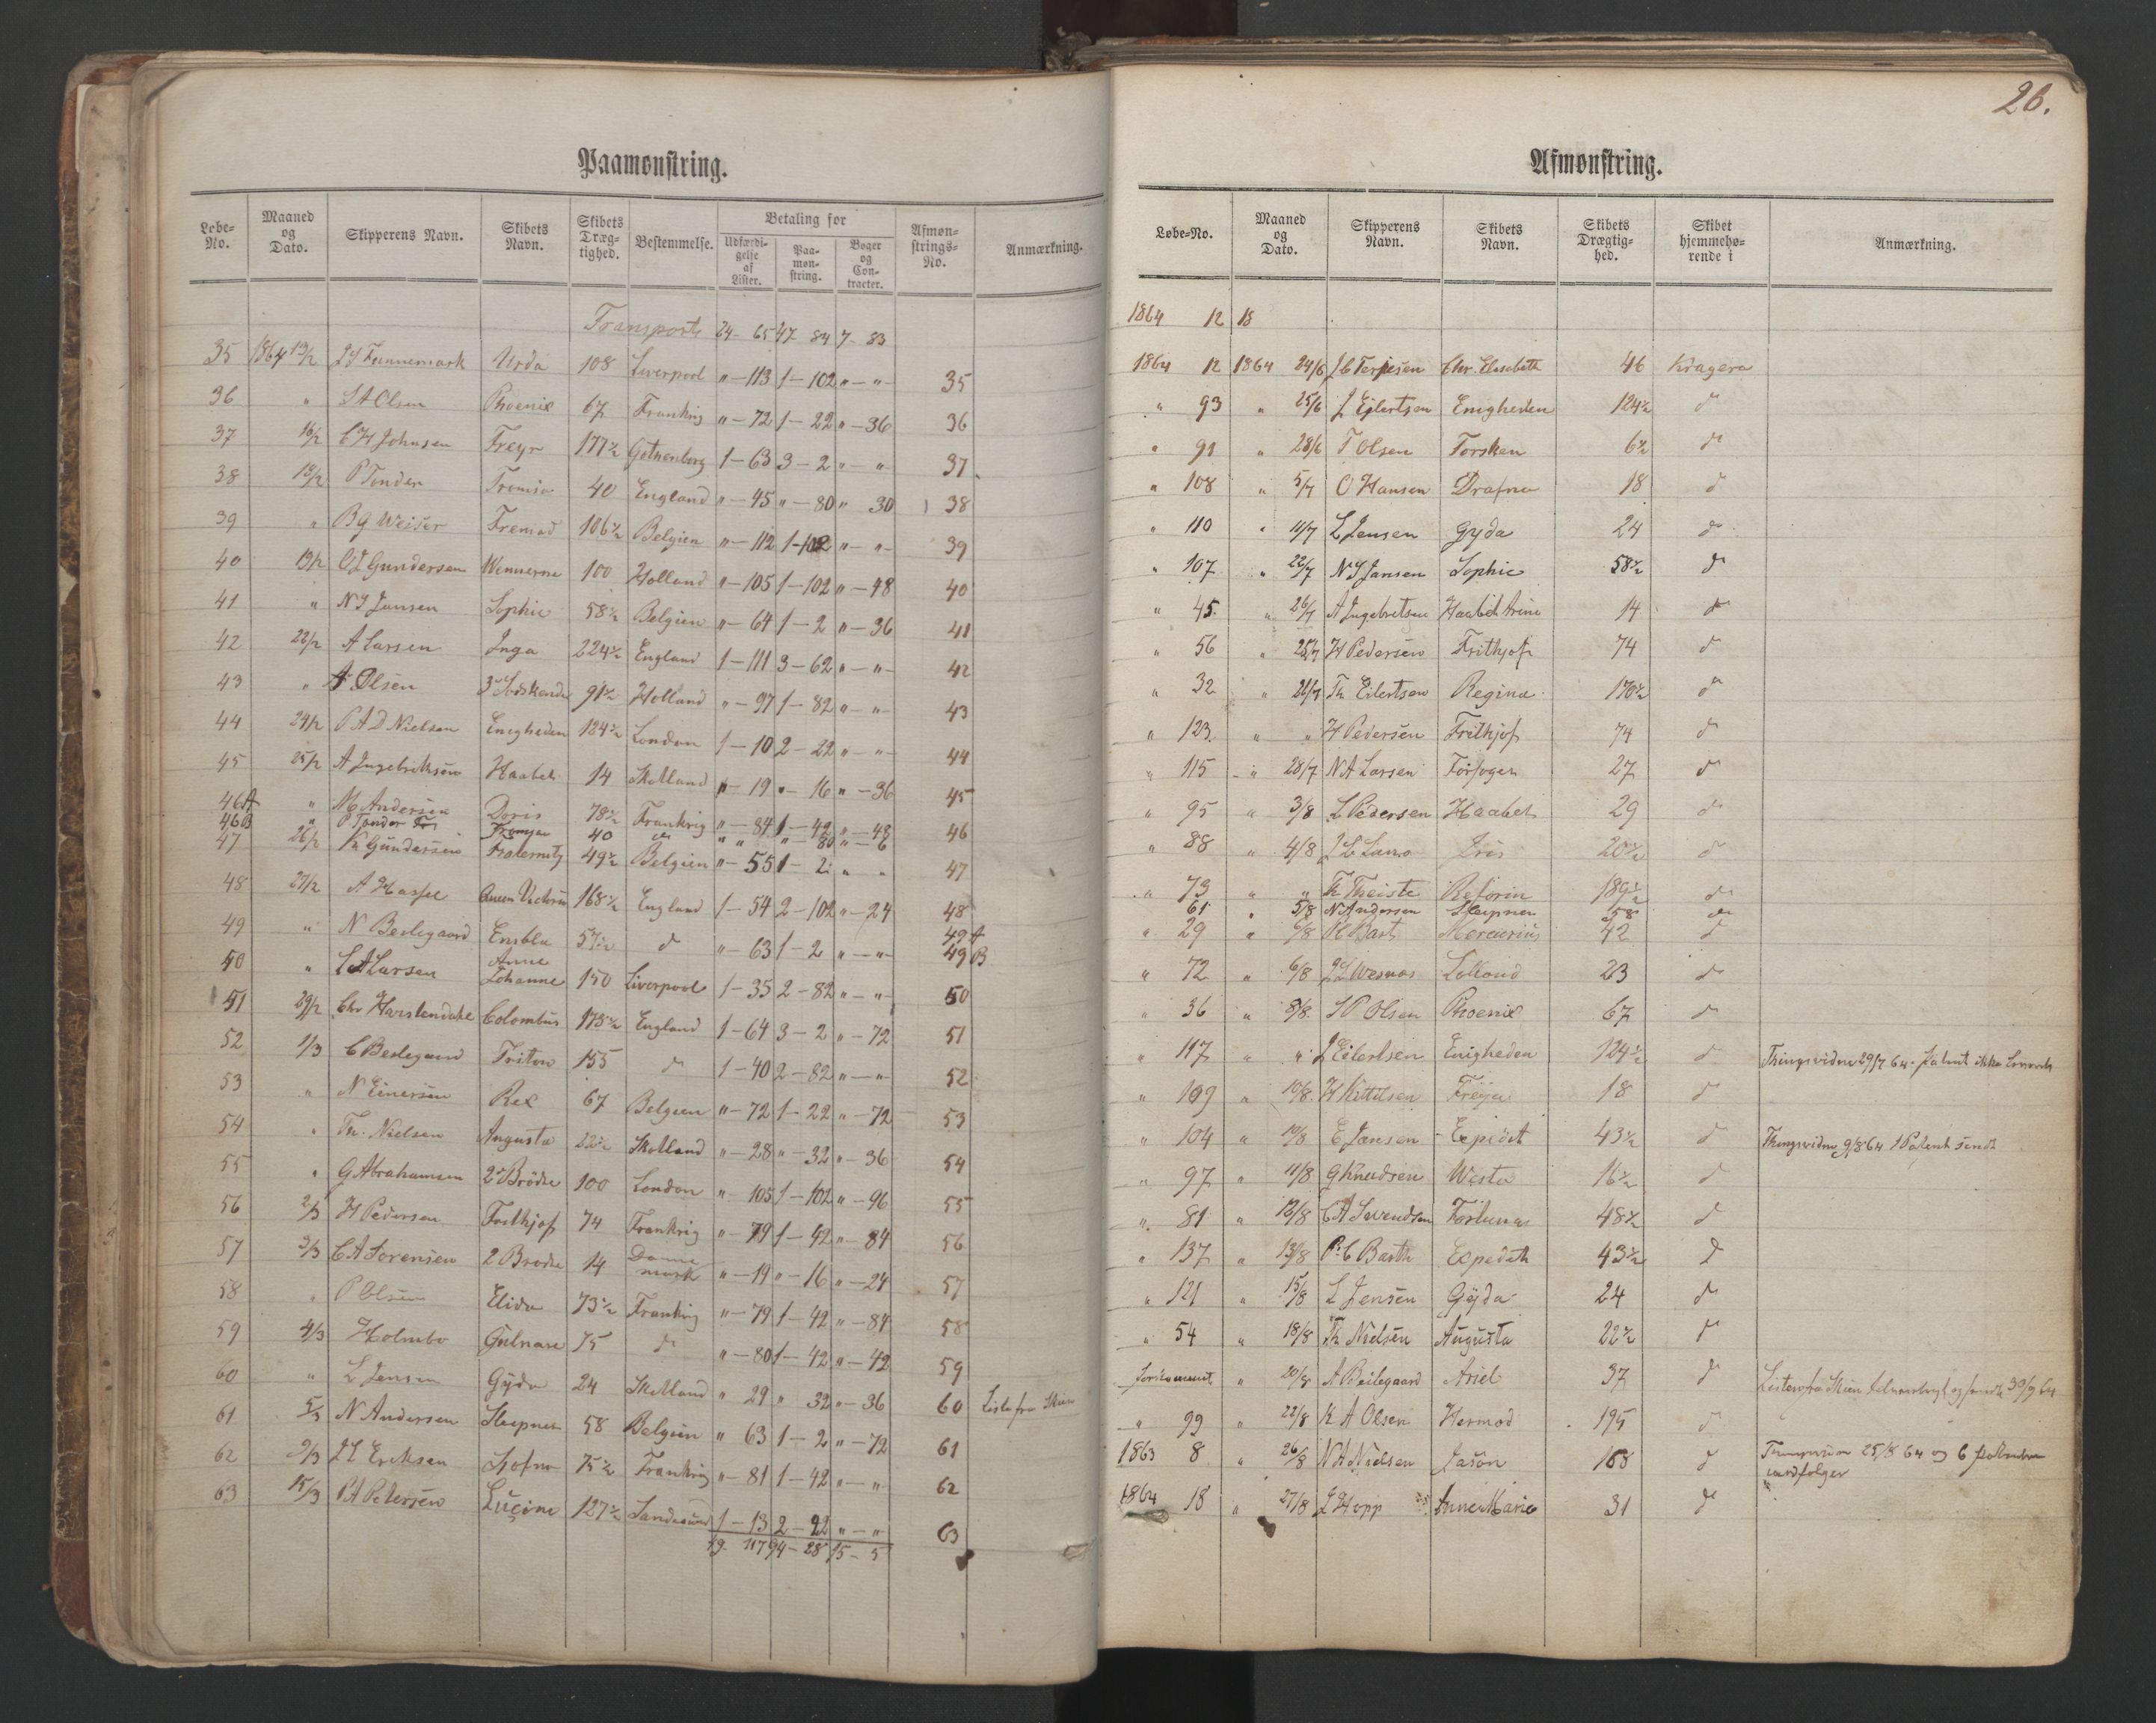 Paamønstring.
Løbe-No. Maaned og Dato. Skipperens Navn. Skibets Navn. Skibets Dræg-tighed. Bestemmelse. Betaling for Udfærdi-gelse af Lister. Paa-møn-string. Bøger og Con-tracter. Afmøn-strings-No. Anmærkning.
Transport 24-65 47-84 7-83
35 1864 13/2 Tunnemark Urda 108 Liverpool "-113 1-102 "-" 35
36 " S A Olsen Phoenix 67 Frankrig "-72 1-22 "-36 36
37 16/2 C H Johnsen Freyr 177½ Gothenborg 1-63 3-2 "-" 37
38 18/2 P Tonder Tromsø 40 England "-45 "-80 " 30 38
39 " B G Weiser Fremad 106½ Belgien "-112 1-102 "-" 39
40 19/2 O L Gundersen Wennerne 100 Holland "-105 1-102 "-48 40
41 " N J Jansen Sophie 58½ Belgien "-64 1-2 "-36 41
42 22/2 A Larsen Inga 224½ England 1-111 3-62 "-" 42
43 " A Olsen 3 Sødskende 91½ Holland "-97 1-82 "-" 43
44 24/2 P A D Nielsen Enigheden 124½ London 1-10 2-22 "-" 44
45 25/2 A Ingebriktsen Haabet 14 Skotland "-19 "-16 "-36 45
46A " M Andersen Doris 78½ Frankrig "-84 1-42 "-48 46
46B " P Tonder Tromsø 40 do " " "-80 "-6
47 26/2 Th Gundersen Fraternity 49½ Belgien "-55 1-2 " " 47
48 27/2 A Hassel Queen Victoria 168½ England 1-54 2-102 "-24 48
49 " N Beslegaard Ensbla 57½ do "-63 1-2 "-" 49A
49B
50 " L A Larsen Anne Johanne 150 Liverpool 1-35 2-82 "-" 50
51 29/2 Chr Harslendahl Colombus 175½ England 1-64 3-2 "-72 51
52 1/3 C Beslegaard Triton 155 do 1-40 2-82 "-" 52
53 " N Einersen Rex 67 Belgien "-72 1-22 "-72 53
54 " Th. Nielsen Augusta 22½ Skotland "-28 "-32 "-36 54
55 " G Abrahamsen 2 Brødre 100 London "-105 1-102 "-96 55
56 2/3 H Pedersen Frithjof 74 Frankrig "-79 1-42 "-84 56
57 3/3 C A Sorensen 2 Brødre 14 Danne mark "-19 "-16 "-24 57
58 " P Olsen Elida 73½ Frankrig "-79 1-42 "-84 58
59 4/3 Holmbo Gulnare 75 do "-80 1-42 "-42 59
60 " L Jensen Gyda 24 Skotland " 29 " 32 "-36 60 Liste fra Skien
61 5/3 N Andersen Sleipner 58 Belgien " 63 1-2 "-72 61
62 9/3 Eriksen Hofna 75½ Frankrig "-81 1-42 "-" 62
63 15/3 P A Petersen Lucine 127½ Sandesund 1-13 2-22 "-" 63
49-117 94-28 15-5
26.
Afmønstring.
Løbe-No. Maaned og Dato. Skipperens Navn. Skibets Navn. Skibets Drægtig-hed. Skibet hjemmehø-rende i Anmærkning.
1864 12 18
1864 12 1864 24/6 J C Terjesen Chr. Elisabeth 46 Kragerø
" 93 " 25/6 J Eilertsen Enigheden 124½ do
" 91 " 28/6 T Olsen Forsken 6½ do
" 108 " 5/7 O Hansen Drafna 18 do
" 110 " 11/7 L Jensen Gyda 24 do
" 107 " 22/7 N J Jansen Sophie 58½ do
" 45 " 26/7 A Ingebretsen Haabet Arine 14 do
" 56 " 25/7 H Pedersen Frithjof 74 do
" 32 " 26/7 Th Eilertsen Regina 170½ do
" 123 " " H Pedersen Frithjof 74 do
" 115 " 28/7 N A Larsen Forsøget 27 do
" 95 " 3/8 L Pedersen Haabet 29 do
" 88 " 4/8 Iris 20½ do
" 73 " " Th Theiste Reform 189½ do
61 " 5/8 N Andersen Sleipner 58 do
" 29 " 6/8 Barth Mercurius 42 do
" 72 " 6/8 Wesnæs Lolland 23 do
" 36 " 8/8 S P Olsen Phoenix 67 do
" 117 " " J Eilertsen Enigheden 124½ do Thingsvidne 29/7 64. Patent ikke
" 109 " 10/8 H Kittilsen Freya 18 do
" 104 " 10/8 E Jansen Expidit 43½ do Thingsvidne 9/8 64 1 Patent sendt
" 97 " 11/8 G Knudsen Westa 16½ do
" 81 " 12/8 C A Sivendsen Fortuna 48½ do
" 137 " 13/8 P C Barth Expedit 43½ do
" 121 " 15/8 L Jensen Gyda 24 do
" 54 " 18/8 Th Nielsen Augusta 22½ do
forkommet " 20/8 A Beilegaard Ariel 37 do Listen fra Skien 30/9 64
" 99 " 22/8 K A Olsen Hermod 195 do
1863 8 " 26/8 N A Nielsen Jason 168 do Thingsvidne 25/8 64 og 6 Patenter vedfølger
1864 18 " 27/8 L Hopp Anne Marie 31 do